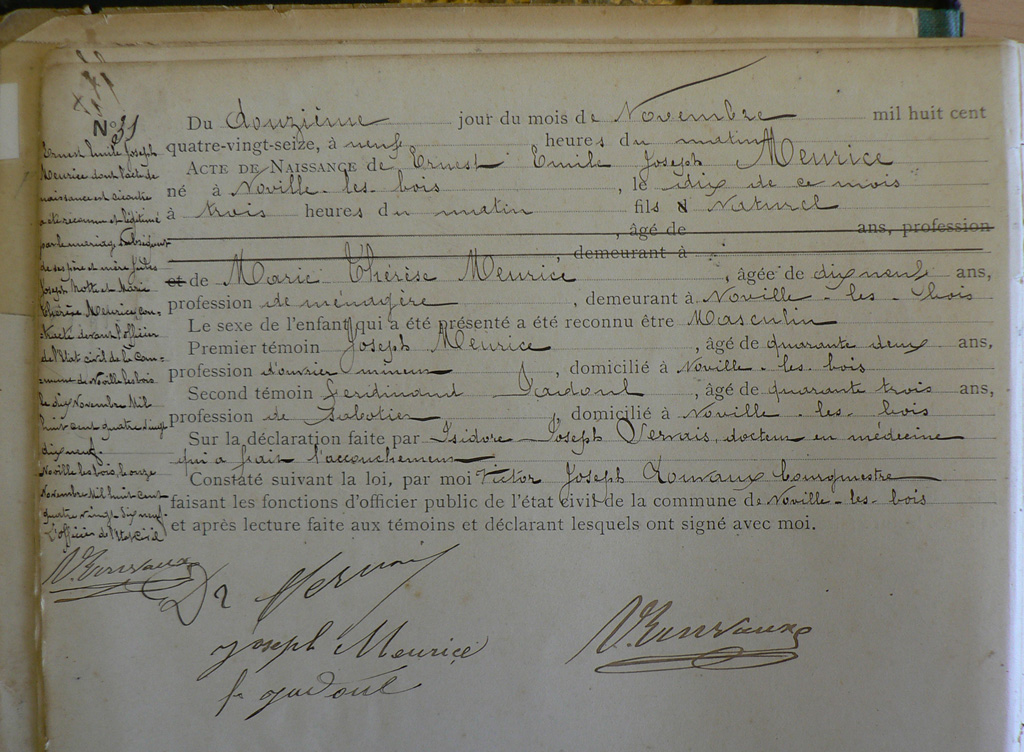 N° 31
Ernest Emile Joseph
Meurice dont l'acte de
naissance est ci contre
a été reconnu et légitimé
par le mariage subséquent
de ses père et mère
Joseph et Marie
Thérèse Meurice con-
tracté devant l'officier
de l'Etat civil de la Com-
mune de Noville les bois
le dix Novembre Mil
huit cent quatre vingt
dix neuf.
Noville les bois, le onze
Novembre Mil huit cent
quatre vingt dix neuf.
L'officier de l'Etat Civil
Du douzième jour du mois de Novembre mil huit cent
quatre-vingt-seize, à neuf heures du matin
ACTE DE NAISSANCE de Ernest Emile Joseph Meurice
né à Noville-les-bois, le dix de ce mois
à trois heures du matin fils Naturel
, âgé de ans, profession
, demeurant à
et de Marie Thérèse Meurice, âgée de dix neuf ans,
profession de ménagère, demeurant à Noville-les-bois
Le sexe de l'enfant qui a été présenté a été reconnu être Masculin
Premier témoin Joseph Meurice, âgé de quarante deux ans,
profession d'ouvrier mineur, domicilié à Noville-les-bois
Second témoin Ferdinand Jadoul, âgé de quarante trois ans,
profession de sabotier, domicilié à Noville-les-bois
Sur la déclaration faite par Isidore Joseph docteur en médecine
qui a fait l'accouchement
Constaté suivant la loi, par moi Victor Joseph bourgmestre
faisant les fonctions d'officier public de l'état civil de la commune de Noville-les-bois
et après lecture faite aux témoins et déclarant lesquels ont signé avec moi.
Dr
Joseph Meurice
f Jadoul